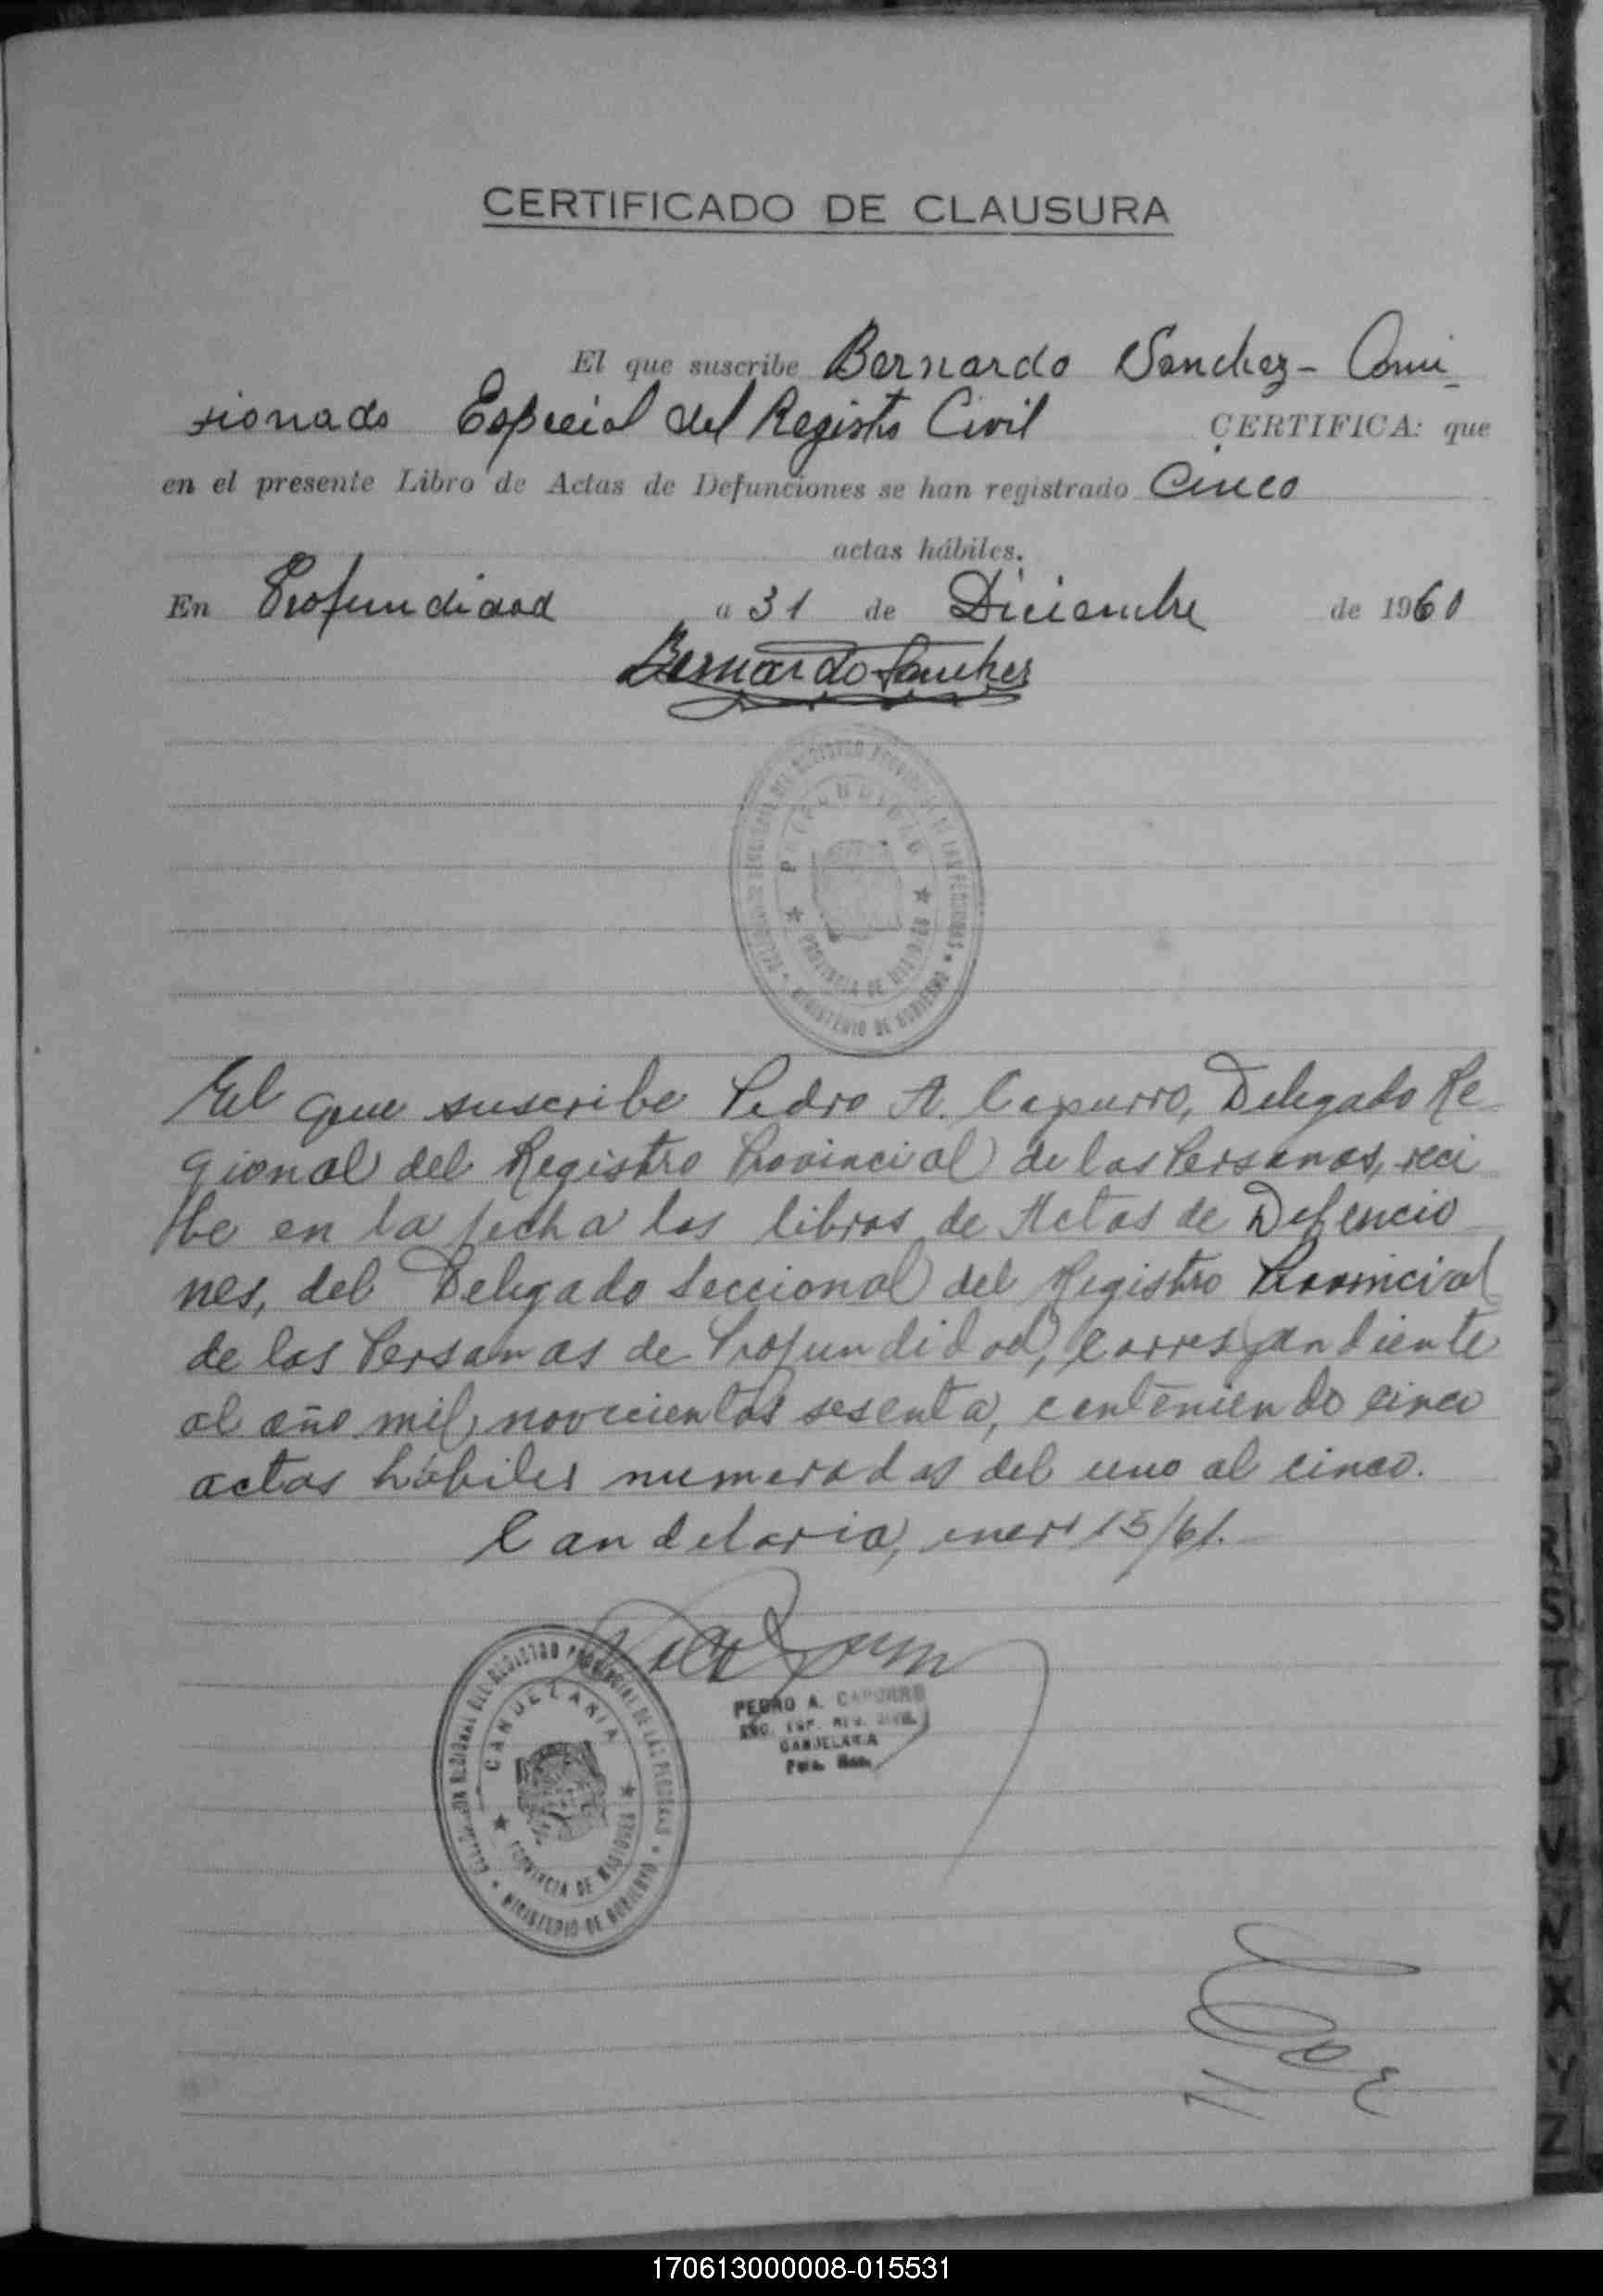 CERTIFICADO DE CLAUSURA
El que suscribe Bernardo Sanchez - Comi
sionado Especial del Registro Civil CERTIFICA: que
en el presente Libro de Actas de Defunciones se han registrado Cinco
actas hábiles.
En Profundidad a 31 de Diciembre de 1960
Bernardo Sanchez
REGISTRO PROVINCIAL DE LAS PERSONAS * MINISTERIO DE GOBIERNO *
PROFUNDIDAD
* PROVINCIA DE MISIONES *
El que suscribe Pedro A. Capurro, Delegado Re-
gional del Registro Provincial de las Personas, reci
be en la fecha los libros de Actas de Defencio
nes, del Delegado Seccional del Registro Provincial
de las Personas de Profundidad, correspondiente
al año mil novecientos sesenta, conteniendo cinco
actas hábiles numeradas del uno al cinco.
Candelaria, enero 15/61.
REGIONAL DEL REGISTRO PROVINCIAL DE LAS PERSONAS * MINISTERIO DE GOBIERNO *
CANDELARIA
* PROVINCIA DE MISIONES *
PEDRO A. CAPURRO
ENC. ESP. REG. CIVIL
CANDELARIA
R
S
T
U
V
X
Y
Z
170613000008-015531